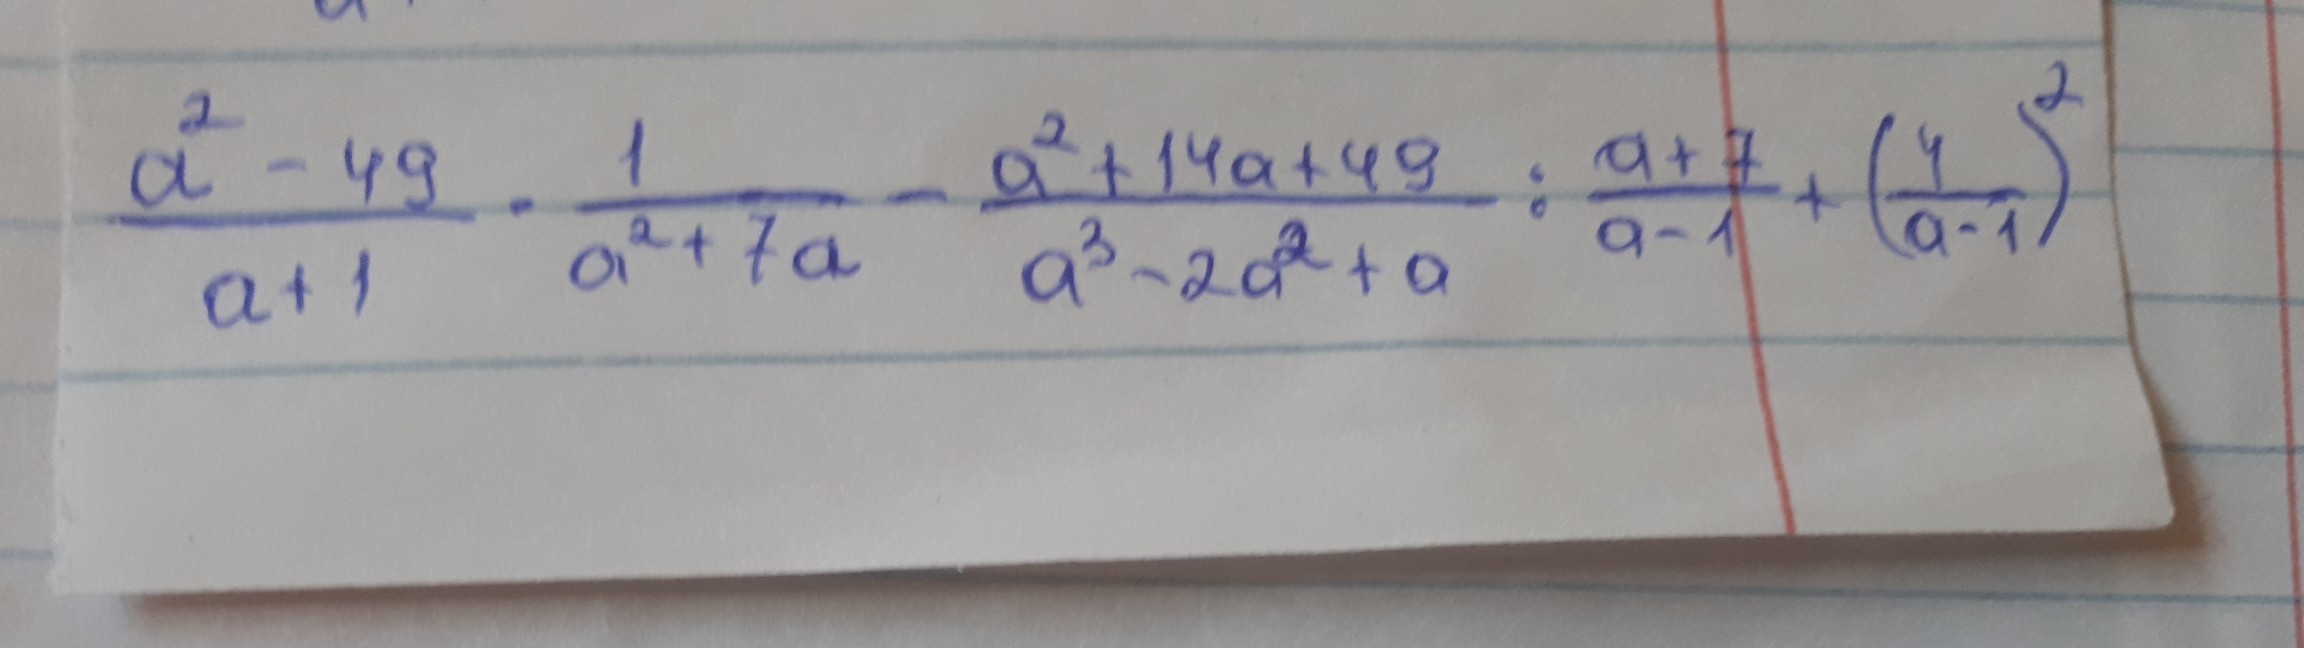 \frac{a^2 - 49}{a+1} \cdot \frac{1}{a^2+7a} - \frac{a^2+14a+49}{a^3-2a^2+a} : \frac{a+7}{a-1} + \left(\frac{4}{a-1}\right)^2